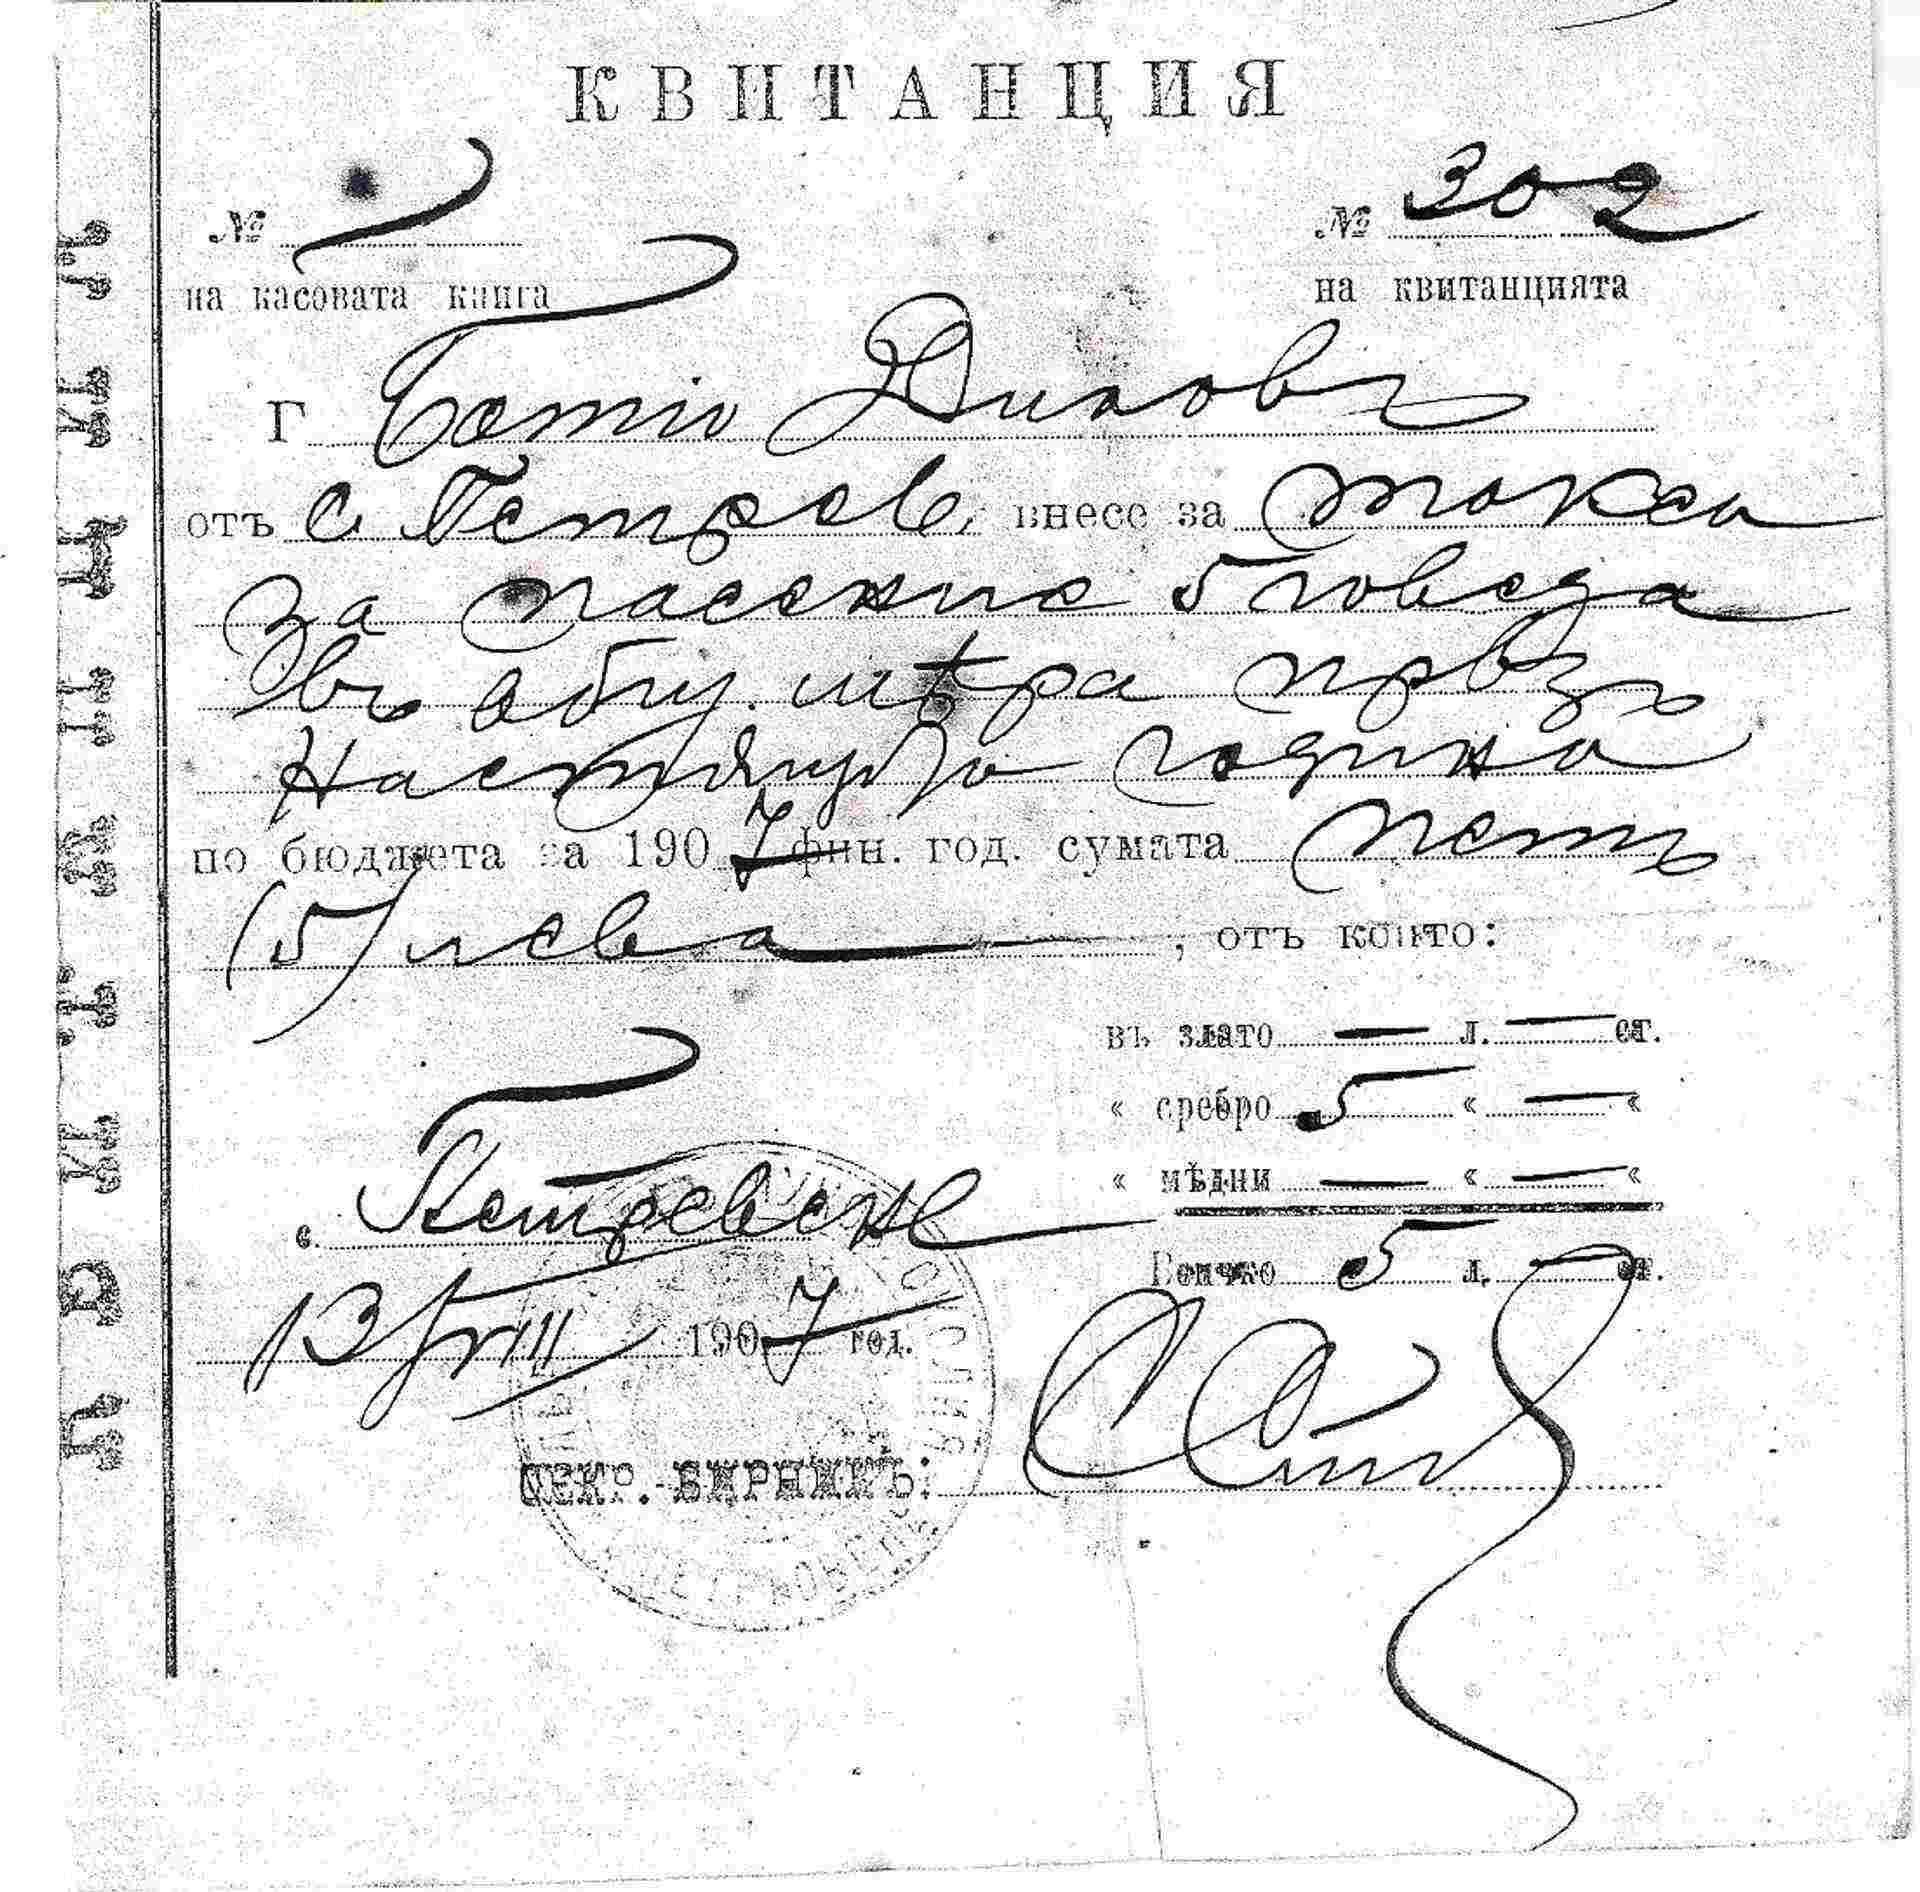 КВИТАНЦИЯ
№ № 302
на касовата книга на квитанцията
Г Ботю Диковъ
отъ с. Петрев. внесе за такса
за пасение 5 говеда
въ общ. мѣра прѣзъ
настоящата година
по бюджета за 1907 фин. год. сумата петь
(5) лева, отъ които:
въ злато — л. — ст.
« сребро 5 « — «
« мѣдни — « — «
с. Петревене Всичко 5 л. — ст.
13/VIII 1907 год.
СЕКР.-БИРНИКЪ:
КВИТАНЦИЯ